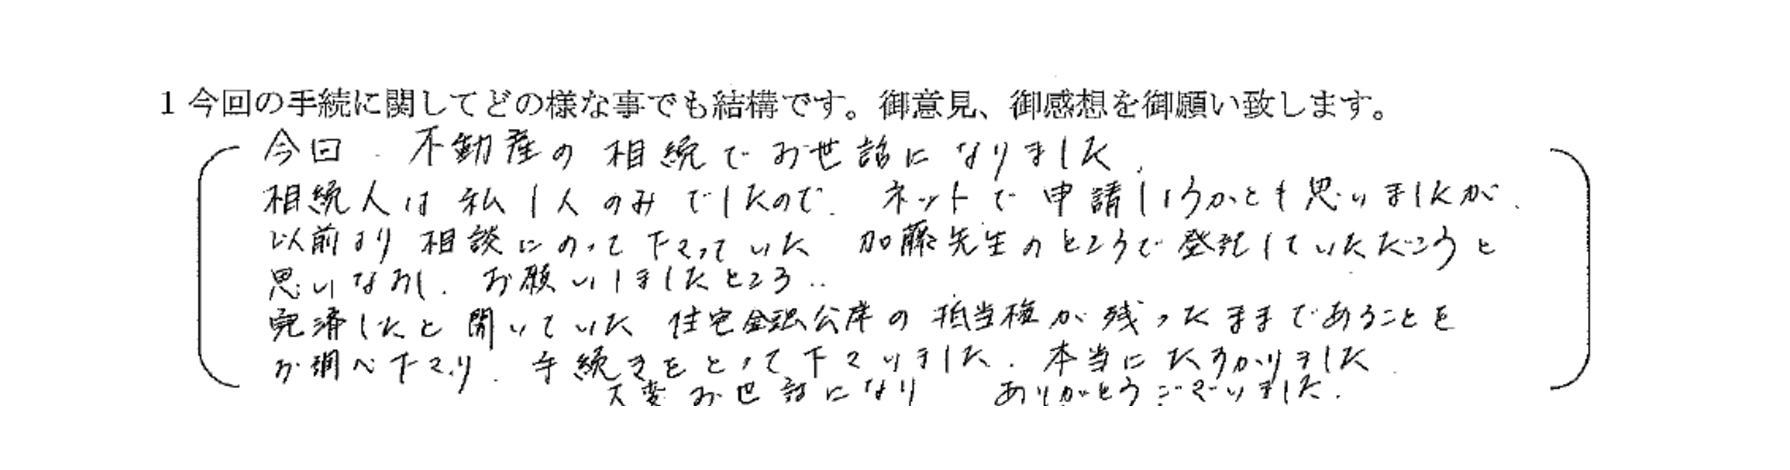 1 今回の手続に関してどの様な事でも結構です。御意見、御感想を御願い致します。
今回、不動産の相続でお世話になりました。
相続人は私1人のみでしたので、ネットで申請しようかとも思いましたが、
以前より相談にのって下さっていた加藤先生のところで登記していただこうと
思いなおし、お願いしましたところ‥
完済したと聞いていた住宅金融公庫の抵当権が残ったままであることを
お調べ下さり、手続きをとって下さいました。本当にたすかりました。
大変お世話になり ありがとうございました。